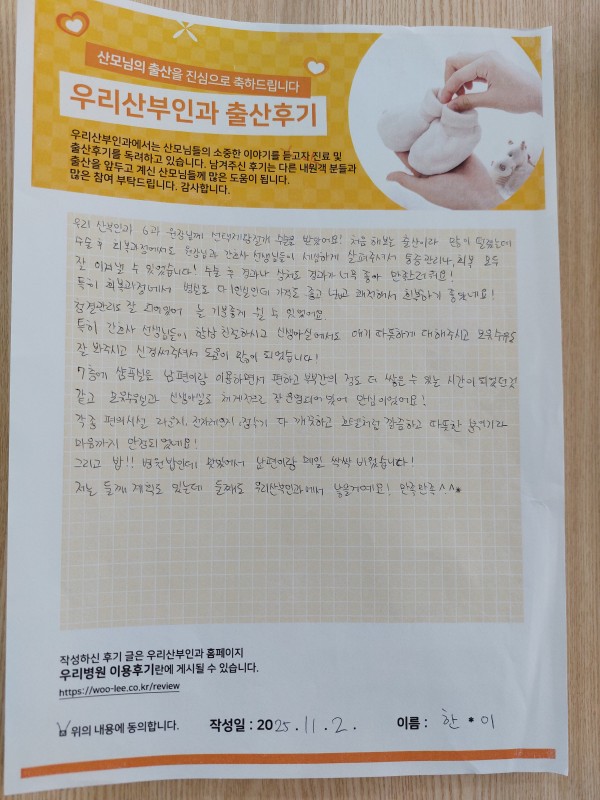 산모님의 출산을 진심으로 축하드립니다
우리산부인과 출산후기
우리산부인과에서는 산모님들의 소중한 이야기를 듣고자 진료 및
출산후기를 독려하고 있습니다. 남겨주신 후기는 다른 내원객 분들과
출산을 앞두고 계신 산모님들께 많은 도움이 됩니다.
많은 참여 부탁드립니다. 감사합니다.
우리 산부인과 6과 원장님께 선택제왕절개 수술로 받았어요! 처음 해보는 출산이라 많이 떨렸는데
수술 후 회복과정에서도 원장님과 간호사 선생님들이 세심하게 살펴주셔서 통증관리나 회복 모두
잘 이겨낼 수 있었습니다! 수술 후 경과나 상처도 경과가 너무 좋아 만족스러워요!
특히 회복과정에서 병실도 다 1인실인데 가격도 좋고 넓고 쾌적해서 회복하기 좋았네요!
청결관리도 잘 되어있어 늘 기분좋게 쉴 수 있었어요.
특히 간호사 선생님들이 항상 친절하시고 신생아실에서도 애기 따뜻하게 대해주시고 모유수유도
잘 봐주시고 신경써주셔서 도움이 많이 되었습니다!
7층에 샴푸실은 남편이랑 이용하면서 편하고 부부간의 정도 더 쌓을 수 있는 시간이 되었던것
같고 모유수유실과 신생아실도 체계적으로 잘 운영되어 있어 안심이었어요!
각종 편의시설 라운지, 전자레인지, 정수기 다 깨끗하고 호텔처럼 깔끔하고 따뜻한 분위기라
마음까지 안정되었네요!
그리고 밥!! 병원밥인데 맛있어서 남편이랑 매일 싹싹 비웠습니다!
저는 둘째 계획도 있는데 둘째도 우리산부인과에서 낳을거예요! 만족만족^^*
작성하신 후기 글은 우리산부인과 홈페이지
우리병원 이용후기란에 게시될 수 있습니다.
https://woo-lee.co.kr/review
위의 내용에 동의합니다. 작성일 : 2025. 11. 2. 이름 : 한 * 이